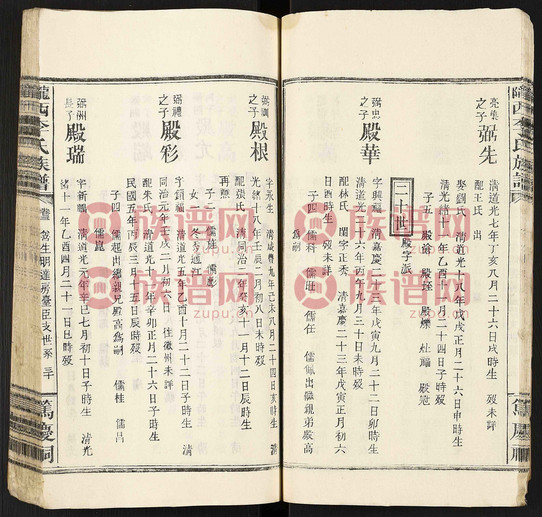 隴西李氏族譜
亮集之子 弼先
清道光七年丁亥八月二十六日戌時生 歿未詳
配王氏 出
娶劉氏 清道光十八年戊戌正月二十六日申時生
清光緒十一年乙酉十二月二十四日子時歿
二十世 殿字派
弼忠之子 殿華
字興 清嘉慶二十三年戊寅九月二十二日卯時生
清道光十六年丙申九月三日戌時歿
配林氏 閨字正秀 清嘉慶二十三年戊寅正月初六
日酉時生 歿未詳
子四 儒科 儒旺 儒任 儒佩出繼親弟殿高
為嗣
篤慶祠
之子 殿根
字永生 清咸豐九年己未八月二十四日亥時生 清
光緒十八年壬辰二月初八日未時歿
配張氏 清同治二年癸亥十一月十二日辰時生
再醮
弼禮之子 殿彩
清道光五年乙酉十月二十二日子時生 清
同治元年壬戌二月初三日 往徽州未詳
配朱氏 清道光十一年辛卯正月二十六日子時生
民國五年丙辰三月十五日辰時歿
子四 儒起出繼親兄殿高為嗣 儒桂 儒昌
儒崑
弼洲長子 殿瑞
字新 清道光元年辛巳七月初十日子時生 清光
緒十一年乙酉四月二十一日巳時歿
隴西李氏族譜
篤慶祠
族譜网
zupu.cn